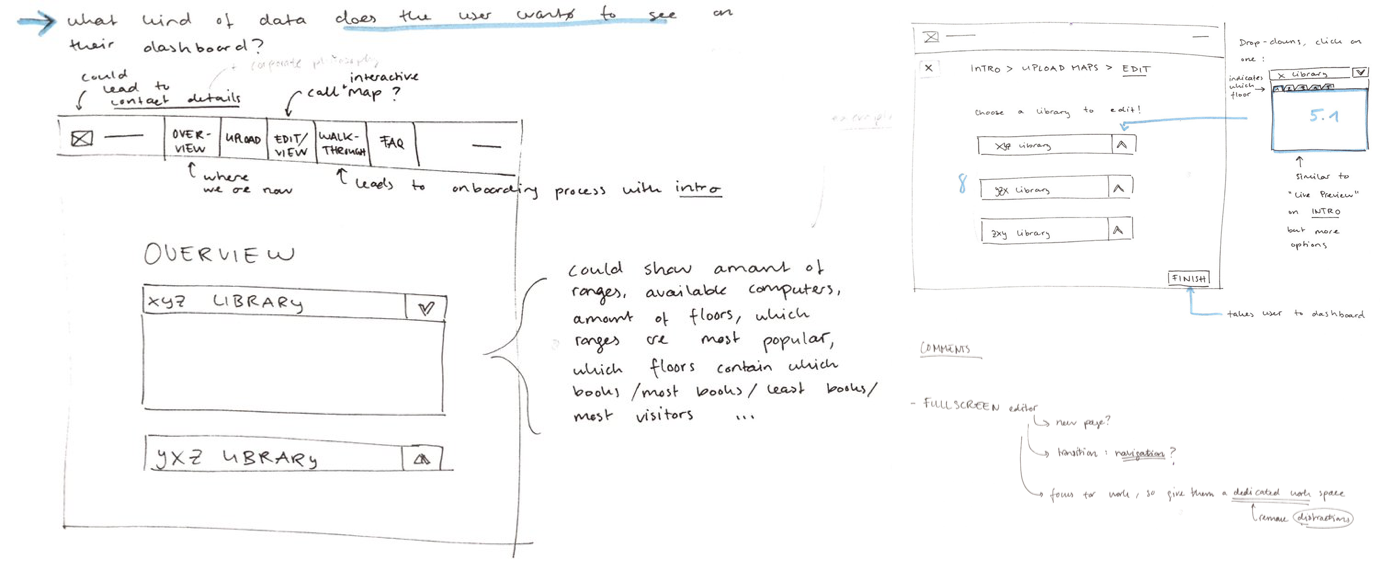 what kind of data does the user wants to see on
their dashboard?
could
lead to
contact details
interactive
call "map"?
OVER-
VIEW
UPLOAD
EDIT/
VIEW
WALK-
THROUGH
FAQ
where
we are now
leads to onboarding process with intro
OVERVIEW
xyz LIBRARY
yxz LIBRARY
could show amount of
ranges, available computers,
amount of floors, which
ranges are most popular,
which floors contain which
books/most books/least books/
most visitors ...
x
INTRO > UPLOAD MAPS > EDIT
Choose a library to edit!
xyz Library
8
yzx Library
zxy Library
FINISH
takes user to dashboard
Drop-downs, click on
one:
indicates
which
floor
x Library
5.1
Similar to
"Live Preview"
on INTRO
but more
options
COMMENTS
- FULLSCREEN editor
new page?
transition: navigation?
focus for work, so give them a dedicated work space
remove distractions